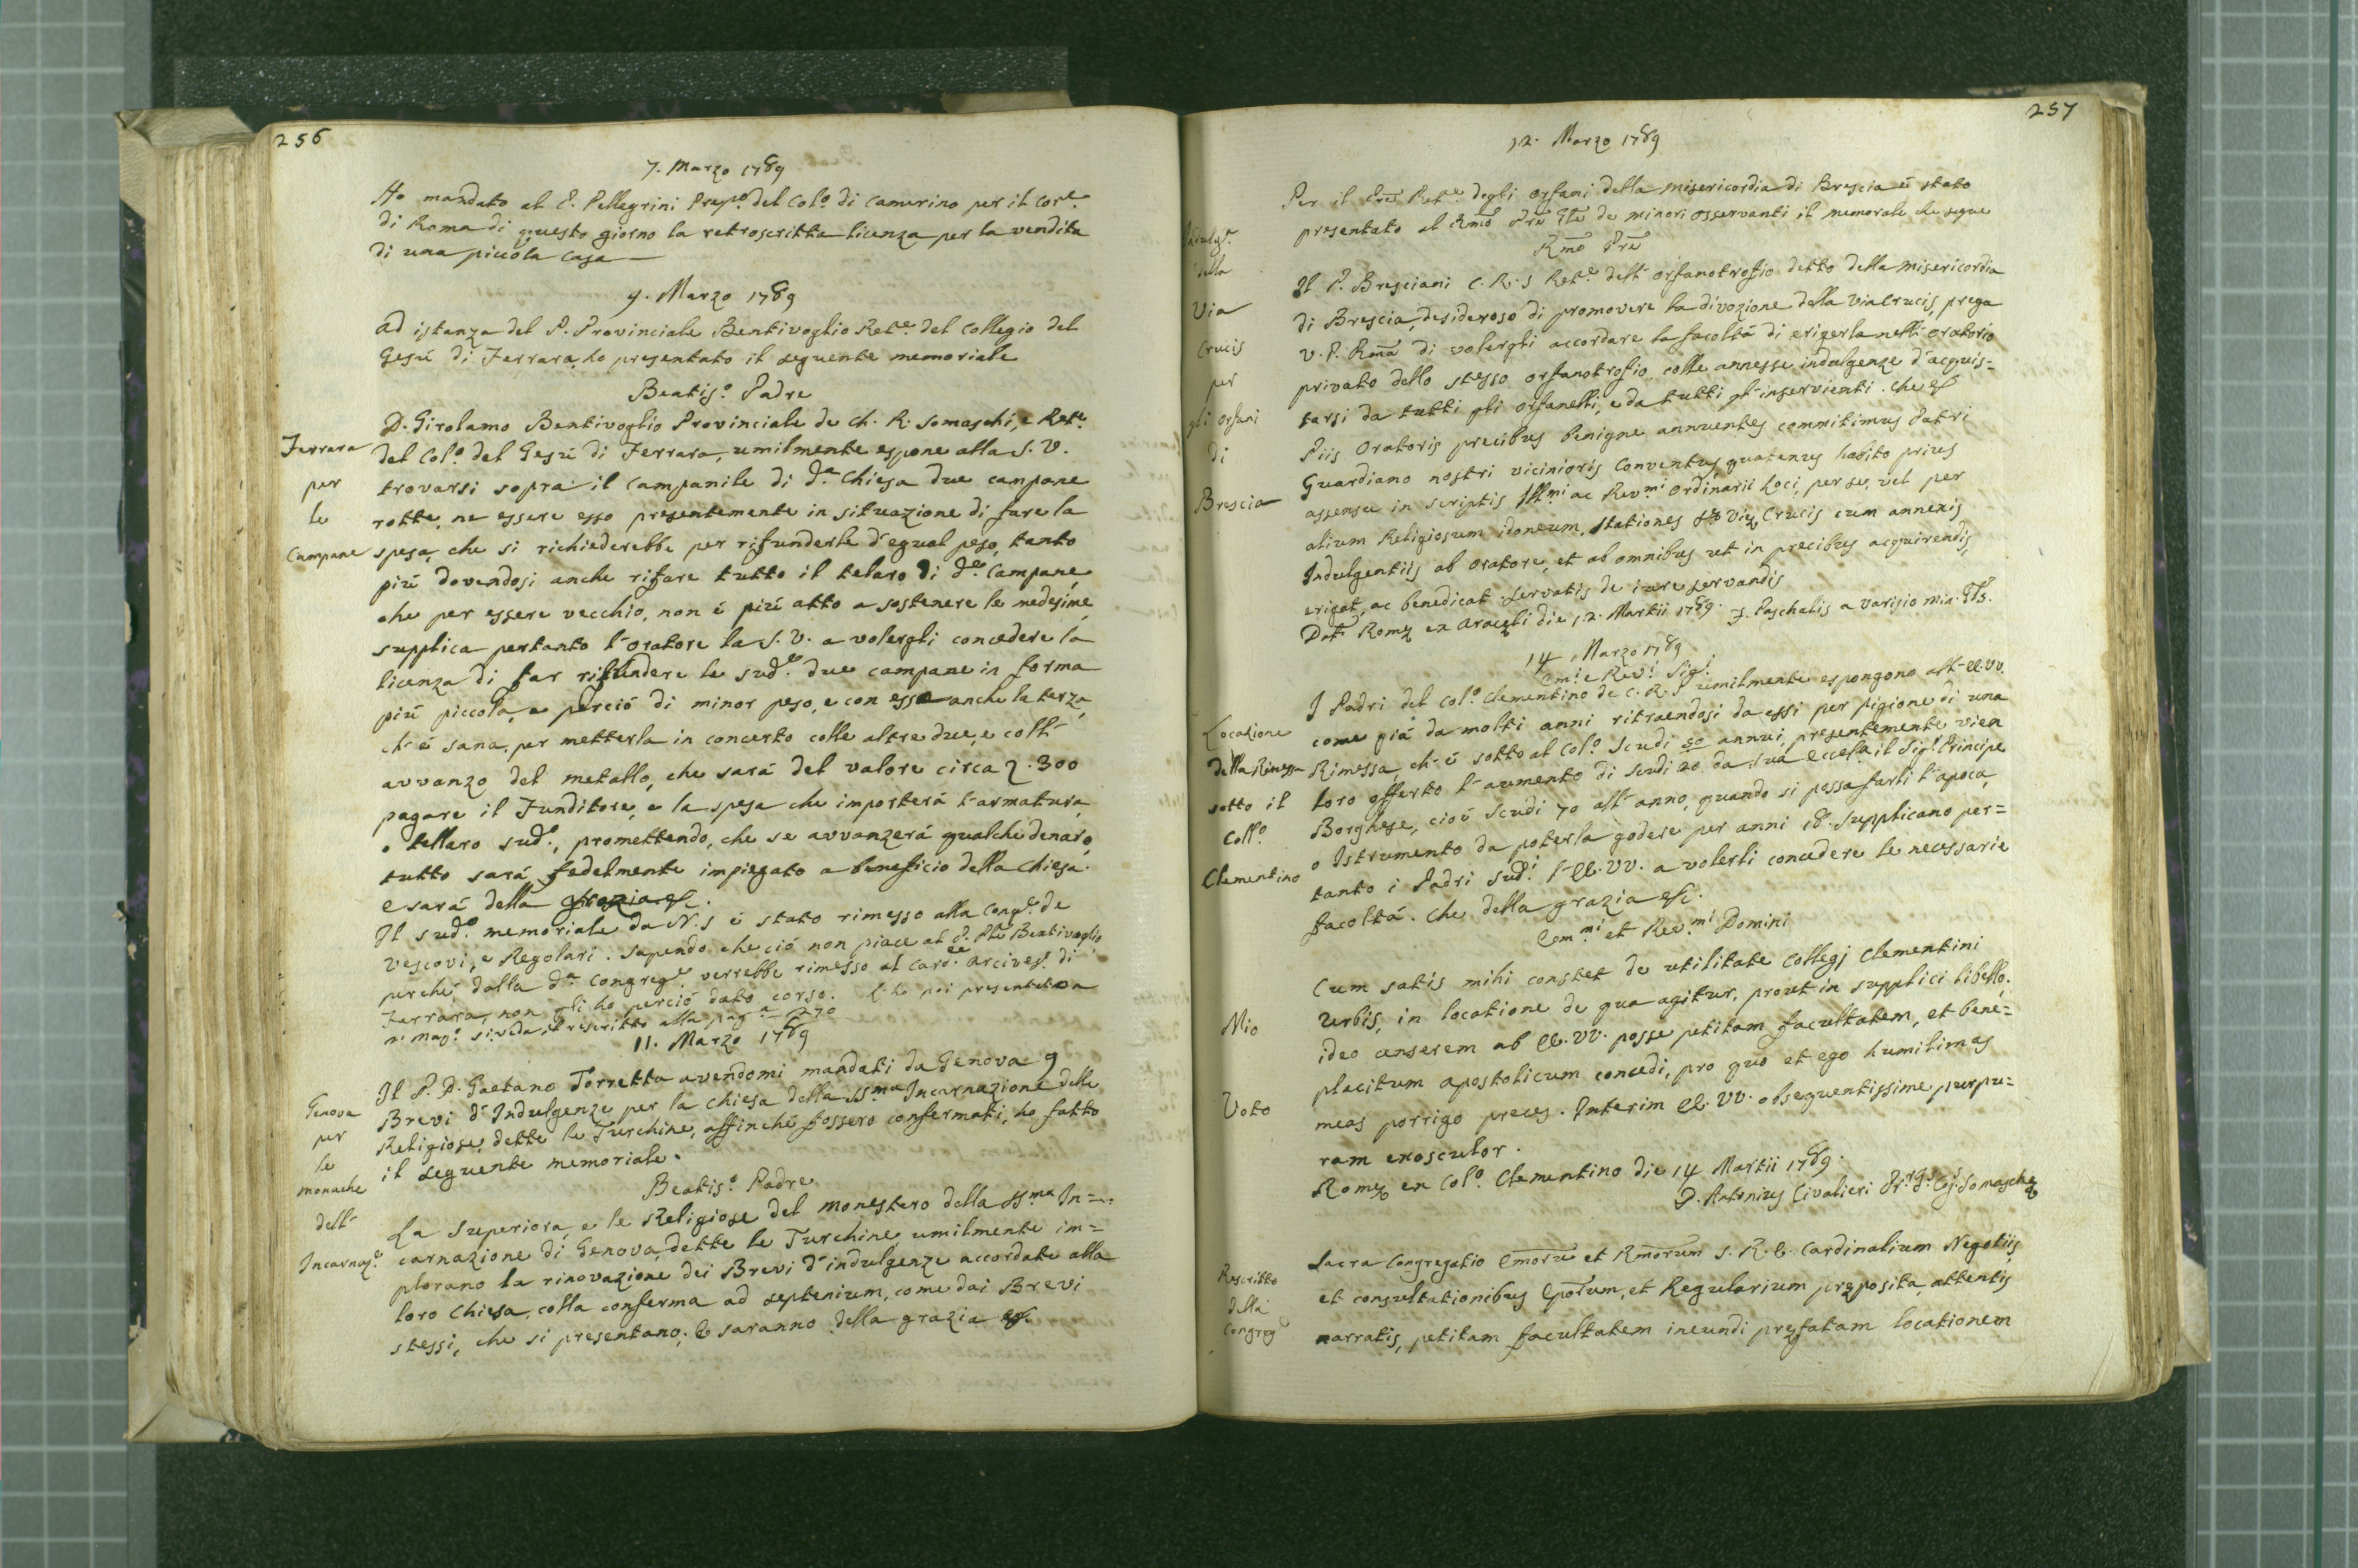 256
7. Marzo 1789
Ho mandato al P. Pellegrini Prepo. del Colo. di Camerino per il Core.
di Roma di questo giorno la retroscritta licenza per la vendita
di una piccola casa
9. Marzo 1789
Ad istanza del P. Provinciale Bentivoglio Rete. del Collegio del
Gesù di Ferrara, ho presentato il seguente memoriale
Beatiso. Padre
D. Girolamo Bentivoglio Provinciale de Ch. R. Somaschi, e Rete.
Ferrara
del Colo. del Gesù di Ferrara, umilmente espone alla S. V.
per
trovarsi sopra il Campanile di da. Chiesa due campane
le
rotte, ne essere esso presentemente in situazione di fare la
Campane
spesa, che si richiederebbe per rifunderle d'egual peso, tanto
più dovendosi anche rifare tutto il telaro di de. Campane,
che per essere vecchio, non è più atto a sostenere le medesime,
supplica pertanto l'oratore la S. V. a volergli concedere la
licenza di far rifundere le sude. due campane in forma
più piccola, e perciò di minor peso, e con esse anche la terza,
ch'è sana, per metterla in concerto colle altre due, e coll'
avvanzo del metallo, che sarà del valore circa 300
pagare il Funditore, e la spesa che importerà l'armatura,
o tellaro sudo., promettendo, che se avvanzerà qualche denaro,
tutto sarà fedelmente impiegato a beneficio della Chiesa.
e sarà della grazia &c.
Il sudo. memoriale da N. S. è stato rimesso alla Conge. de
Vescovi, e Regolari. Sapendo che ciò non piace al P. Ple Bentivoglio
perchè dalla da. Congrege. verrebbe rimesso al Carde. Arcives. di
Ferrara, non gli ho perciò dato corso. L'ho poi presentato a
Mago. si veda il rescritto alla paga. 270
11. Marzo 1789
Il P. D. Gaetano Torretta avendomi mandati da Genova 9
Genova
Brevi d'Indulgenze per la Chiesa della SSma Incarnazione delle
per
Religiose dette le Turchine, affinchè fossero confermati, ho fatto
le
il seguente memoriale.
monache
Beatiso. Padre
dell'
La Superiora, e le Religiose del monestero della SSma In=
Incarnaze.
carnazione di Genova, dette le Turchine, umilmente im=
plorano la rinovazione dei Brevi d'indulgenze accordate alla
loro Chiesa, colla conferma ad septenium, come dai Brevi
stessi, che si presentano; e saranno della grazia &c.
257
12. Marzo 1789
Per il Pre Rete. degli Orfani della misericordia di Brescia è stato
presentato al Rmo Pre Gle de minori osservanti il memoriale che segue
Rmo Pre
Indulge.
della
Via
Crucis
per
gli Orfani
di
Brescia
Il P. Bresciani C. R. S Rete. dell'orfanotrofio detto della Misericordia
di Brescia, desideroso di promovere la divozione della Via Crucis, prega
V. P. Rma di volergli accordare la facoltà di erigerla nell'oratorio
privato dello stesso orfanotrofio, colle annesse indulgenze d'acquis=
tarsi da tutti gli orfanelli, e da tutti gl'inservienti. Che &c
Piis Oratoris precibus benigne annuentes commitimus Patri
Guardiano nostri vicinioris Conventus, quatenus habito prius
assensu in scriptis Illmi ac Revmi ordinarii loci, per se, vel per
alium Religiosum idoneum, stationes Viæ Crucis cum annexis
Indulgentiis ab oratore, et ab omnibus ut in precibus acquirendis,
erigat, ac benedicat. servatis de iure servandis
Dat. Romæ ex Aracæli die 12. Martii 1789. F. Paschalis a Varisio Min. Gls.
14 Marzo 1789
Emi. e Revi Sigi
I Padri del Colo. Clementino de C. R. S umilmente espongono all'EE. VV.
come già da molti anni ritraendosi da essi per pigione di una
Locazione
della Rimessa
sotto il
Collo.
Clementino
Rimessa, ch'è sotto al Colo. scudi 50 annui, presentemente vien
loro offerto l'aumento di scudi 20 da sua Eccelza il Sigr. Principe
Borghese, cioè scudi 70 all'anno, quando si possa farli l'apoca,
o Istrumento da poterla godere per anni 18. supplicano per=
tanto i Padri sudi. l'EE. VV. a volerli concedere le necessarie
facoltà. Che della grazia &c.
Emmi et Revmi Domini
Cum satis mihi constet de utilitate Collegj Clementini
Urbis, in locatione de qua agitur, prout in supplici libello;
Mio
ideo censerem ab EE. VV. posse petitam facultatem, et bene=
placitum apostolicum concedi, pro quo et ego humilimas
Voto
meas porrigo preces. Interim EE. VV. obsequentissime purpu=
ram exosculor.
Romæ ex Colo. Clementino die 14 Martii 1789.
D. Antonius Civalieri Pr. Gs. Cg. Somaschæ
Sacra Congregatio Emorum et Rmorum S. R. E. Cardinalium Negotiis
Rescritto
della
Congrege
et consultationibus Eporum, et Regularium præposita, attentis
narratis, petitam facultatem ineundi præfatam locationem